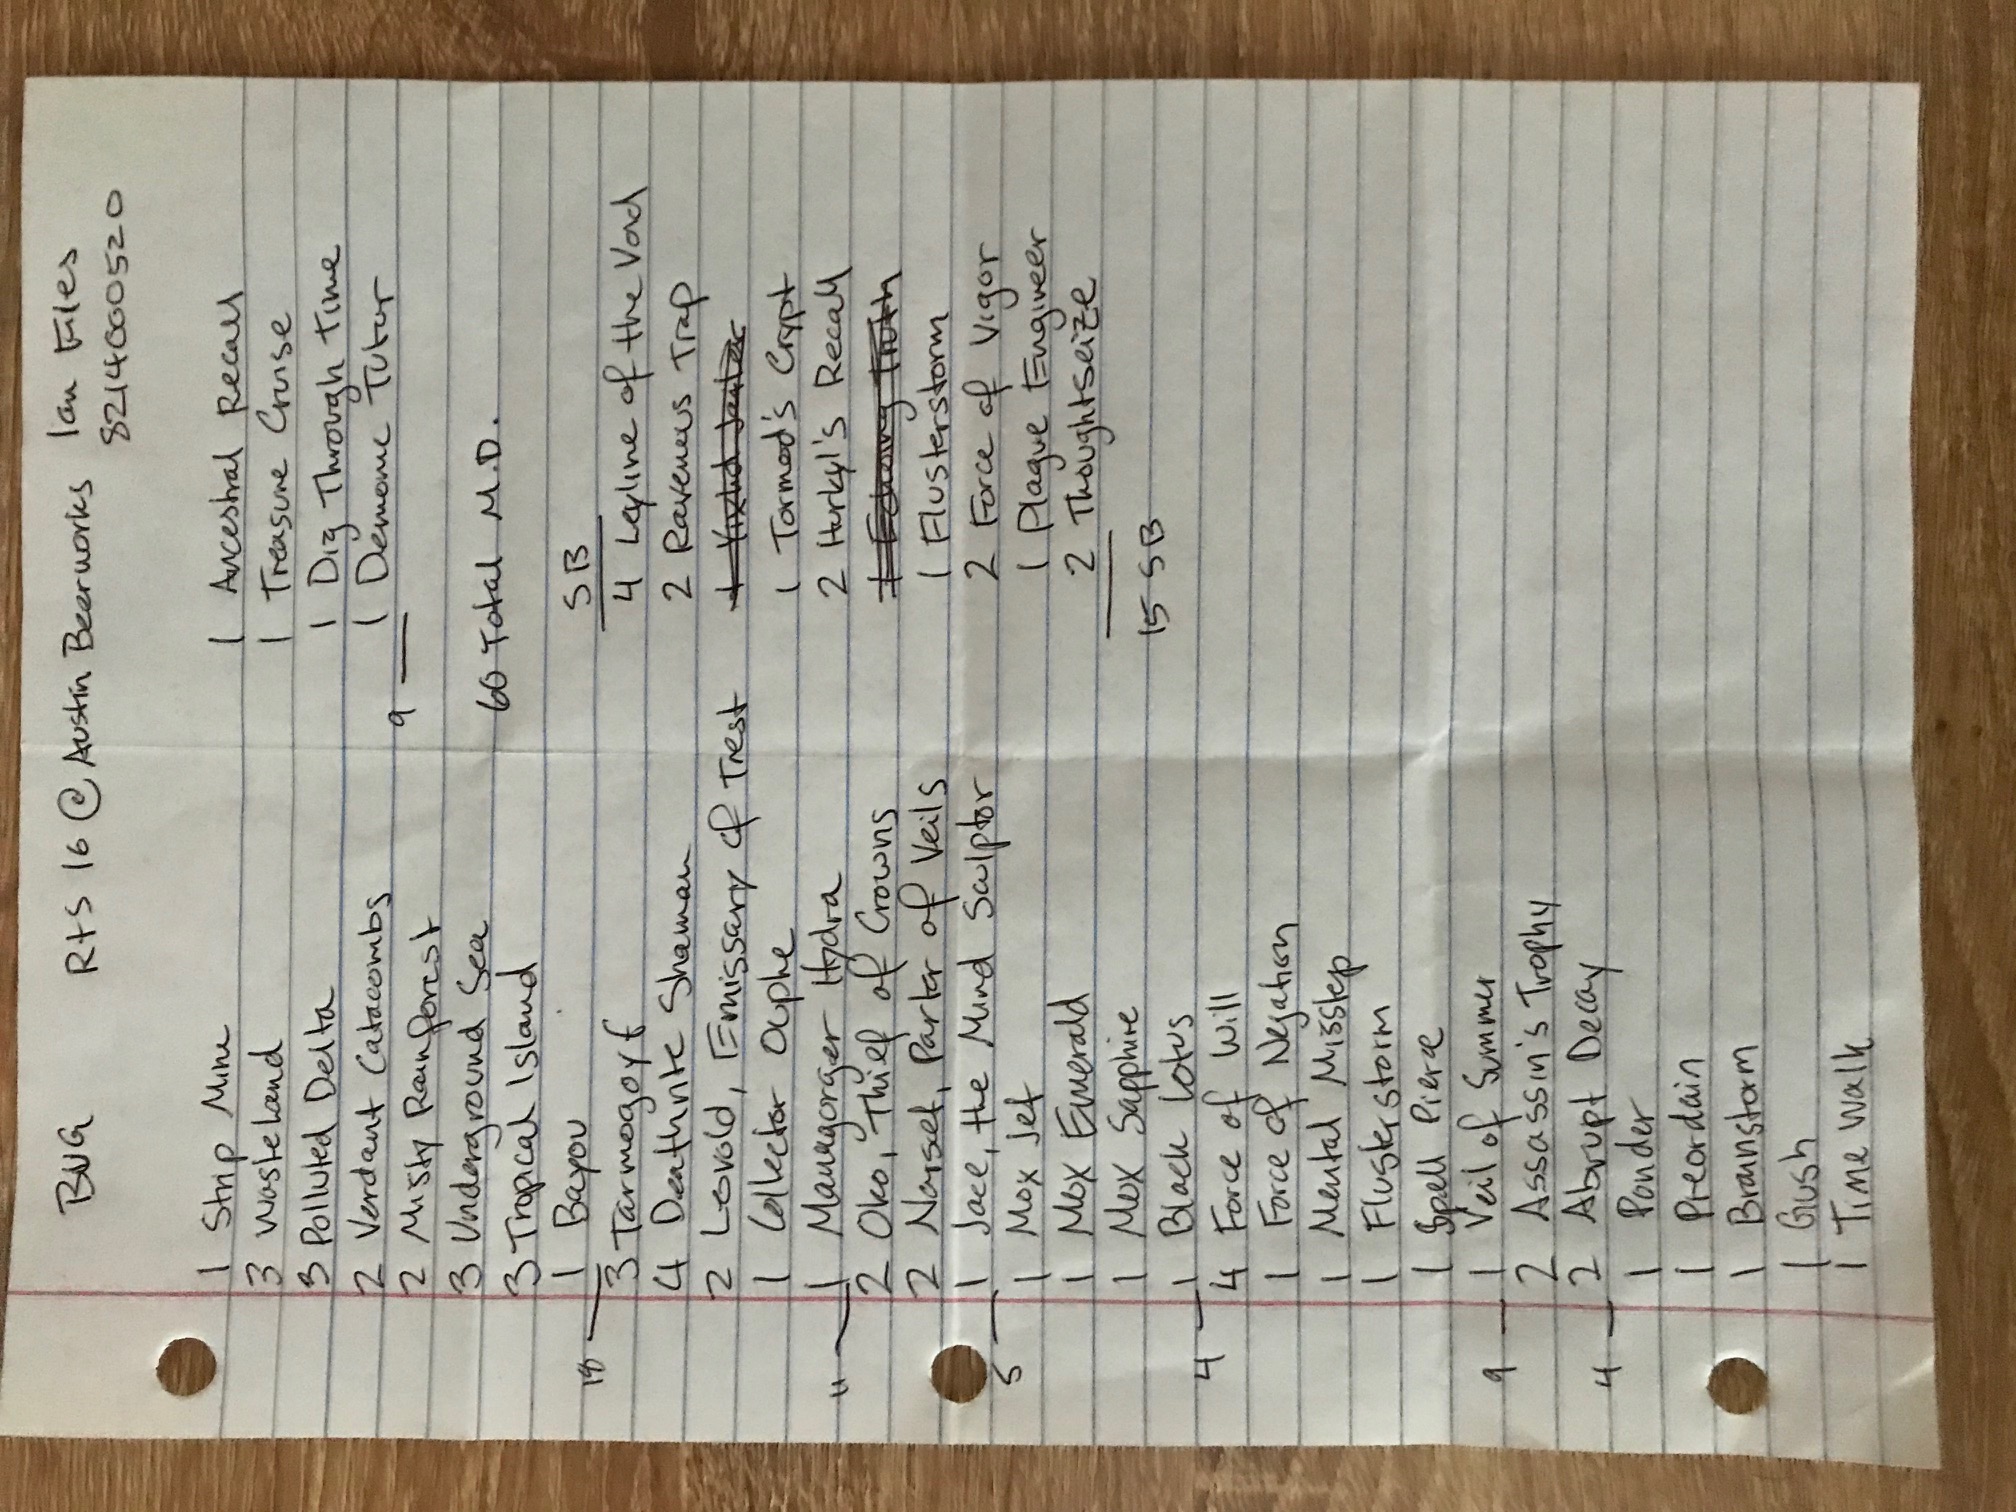 BUG RtS 16 @ Austin Beerworks Ian Files
8214000520
1 Strip Mine
3 Wasteland
3 Polluted Delta
2 Verdant Catacombs
2 Misty Rainforest
3 Underground Sea
3 Tropical Island
1 Bayou
18
3 Tarmogoyf
4 Deathrite Shaman
2 Leovold, Emissary of Trest
1 Collector Ouphe
1 Managorger Hydra
11
2 Oko, Thief of Crowns
2 Narset, Parter of Veils
1 Jace, the Mind Sculptor
5
1 Mox Jet
1 Mox Emerald
1 Mox Sapphire
1 Black Lotus
4
4 Force of Will
1 Force of Negation
1 Mental Misstep
1 Flusterstorm
1 Spell Pierce
1 Veil of Summer
9
2 Assassin's Trophy
2 Abrupt Decay
4
1 Ponder
1 Preordain
1 Brainstorm
1 Gush
1 Time Walk
1 Ancestral Recall
1 Treasure Cruise
1 Dig Through Time
1 Demonic Tutor
9
60 Total M.D.
SB
4 Leyline of the Void
2 Ravenous Trap
1 Yixlid Jailer
1 Tormod's Crypt
2 Hurkyl's Recall
1 Echoing Truth
1 Flusterstorm
2 Force of Vigor
1 Plague Engineer
2 Thoughtseize
15 SB